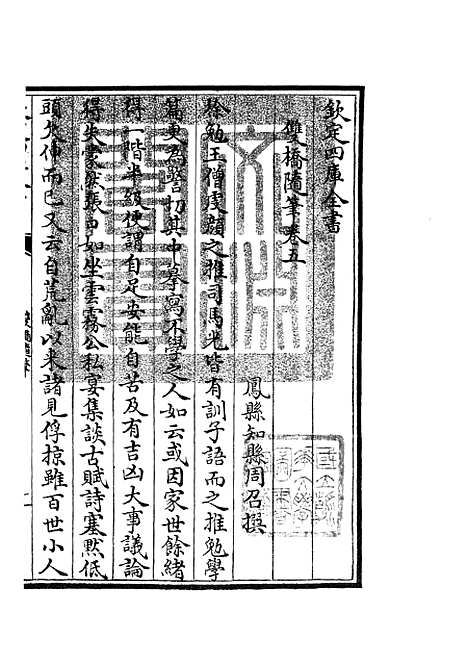 欽定四庫全書
雙橋隨筆卷五
鳳縣知縣周召撰
徐勉王僧虔顏之推司馬光皆有訓子語而之推勉學
篇更為警切其中摹寫不學之人如云或因家世餘緒
得一階半級便謂自足安能自苦及有吉凶大事議論
得失蒙然張口如坐雲霧公私宴集談古賦詩塞默低
頭欠伸而已又云自荒亂以來諸見俘掠雖百世小人